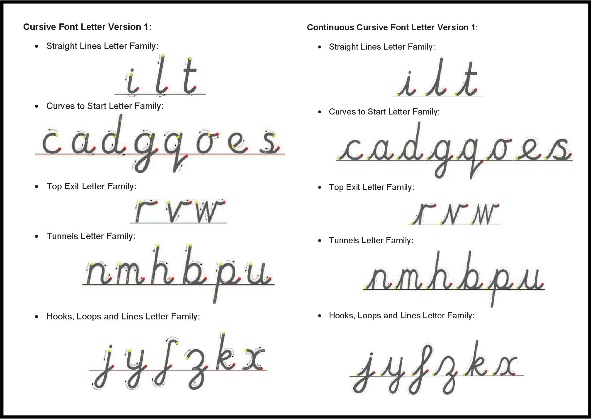 Cursive Font Letter Version 1:
• Straight Lines Letter Family:
i l t
• Curves to Start Letter Family:
c a d g q o e s
• Top Exit Letter Family:
r v w
• Tunnels Letter Family:
n m h b p u
• Hooks, Loops and Lines Letter Family:
j y f z k x
Continuous Cursive Font Letter Version 1:
• Straight Lines Letter Family:
i l t
• Curves to Start Letter Family:
c a d g q o e s
• Top Exit Letter Family:
r v w
• Tunnels Letter Family:
n m h b p u
• Hooks, Loops and Lines Letter Family:
j y f z k x